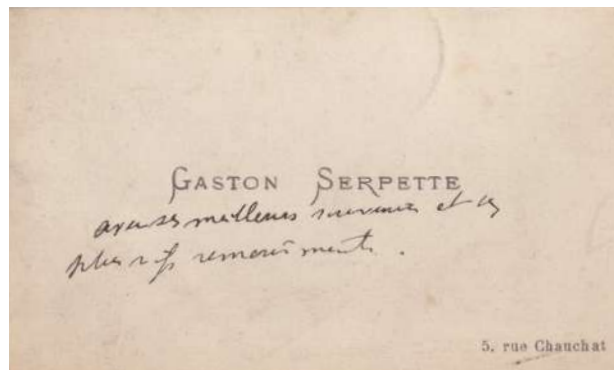 GASTON SERPETTE
avec ses meilleurs souvenirs et ses
plus vifs remerciments.
5, rue Chauchat